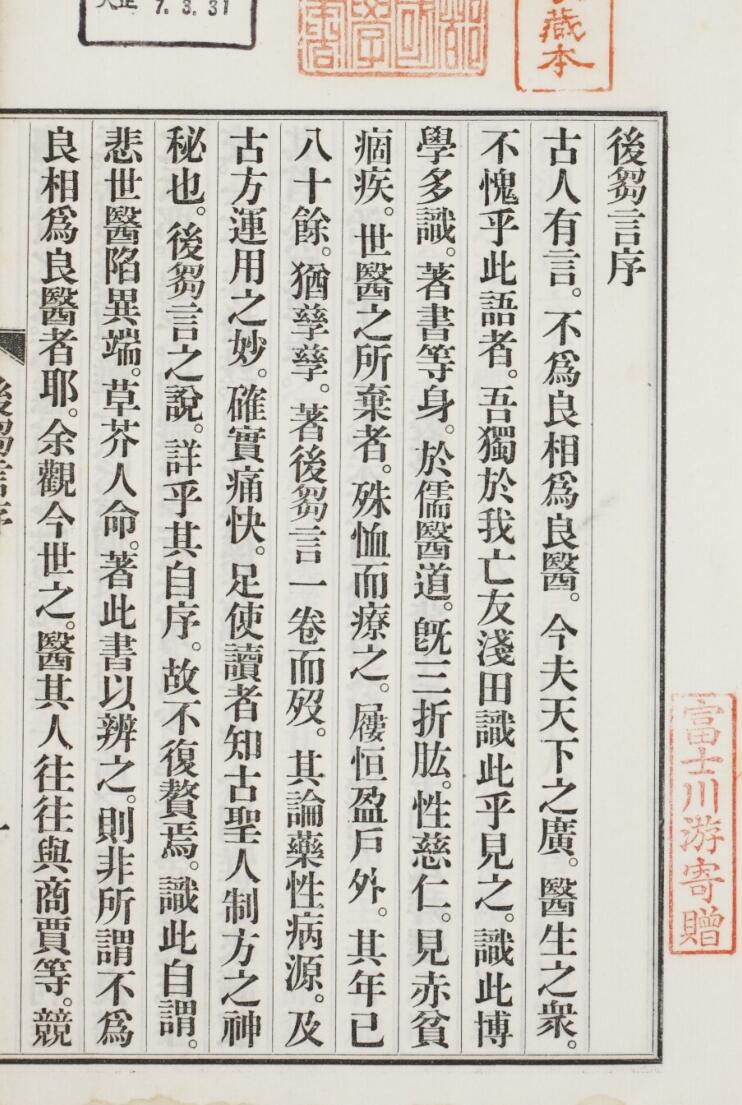 後芻言序
古人有言。不爲良相爲良醫。今夫天下之廣。醫生之衆。
不愧乎此語者。吾獨於我亡友淺田識此乎見之。識此博
學多識。著書等身。於儒醫道。旣三折肱。性慈仁。見赤貧
痼疾。世醫之所棄者。殊恤而療之。屨恒盈戶外。其年已
八十餘。猶孳孳。著後芻言一卷而歿。其論藥性病源。及
古方運用之妙。確實痛快。足使讀者知古聖人制方之神
秘也。後芻言之說。詳乎其自序。故不復贅焉。識此自謂。
悲世醫陷異端。草芥人命。著此書以辨之。則非所謂不爲
良相爲良醫者耶。余觀今世之。醫其人往往與商賈等。競
後芻言序
一
藏本
富士川游寄贈
7.3.31